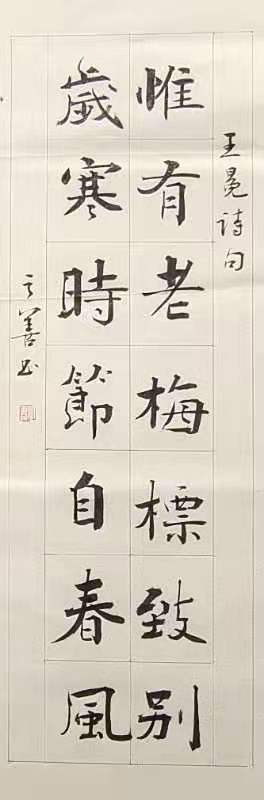 王冕诗句
惟有老梅標致别
歲寒時節自春風
之善书